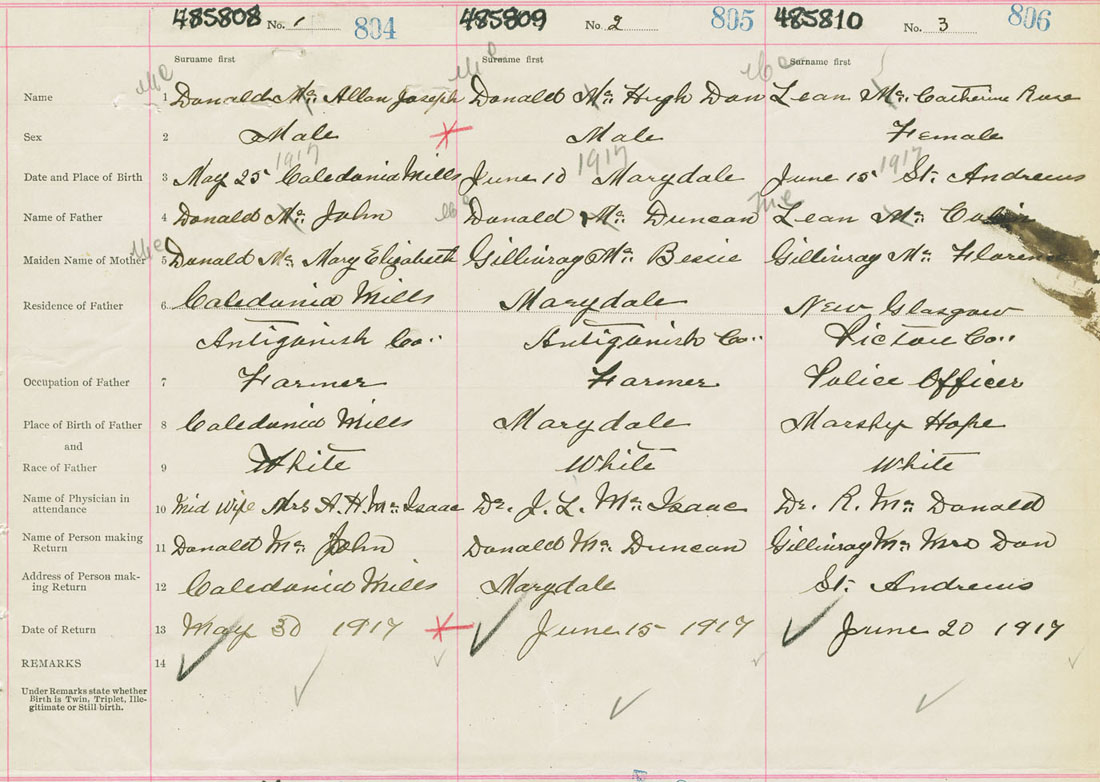 485808 No. 1 804 485809 No. 2 805 485810 No. 3 806
Surname first Surname first Surname first
Mc Mc Mc
Name 1 Donald Mc Allan Joseph Donald Mc Hugh Dan Lean Mc Catherine Rose
Sex 2 Male Male Female
1917 1917 1917
Date and Place of Birth 3 May 25 Caledonia Mills June 10 Marydale June 15 St. Andrews
Name of Father 4 Donald Mc John Mc Donald Mc Duncan Mc Lean Mc
Maiden Name of Mother Mc 5 Donald Mc Mary Elizabeth Gillivray Mc Bessie Gillivray Mc Florence
Residence of Father 6 Caledonia Mills Marydale New Glasgow
Antigonish Co. Antigonish Co. Pictou Co.
Occupation of Father 7 Farmer Farmer Police Officer
Place of Birth of Father 8 Caledonia Mills Marydale Marshy Hope
and
Race of Father 9 White White White
Name of Physician in attendance 10 Mid Wife Mrs A. H. Mc Isaac Dr. J. L. Mc Isaac Dr. R. Mc Donald
Name of Person making Return 11 Donald Mc John Donald Mc Duncan Gillivray Mc Mrs Dan
Address of Person mak-ing Return 12 Caledonia Mills Marydale St. Andrews
Date of Return 13 May 30 1917 June 15 1917 June 20 1917
REMARKS 14
Under Remarks state whether
Birth is Twin, Triplet, Ille-
gitimate or Still birth.